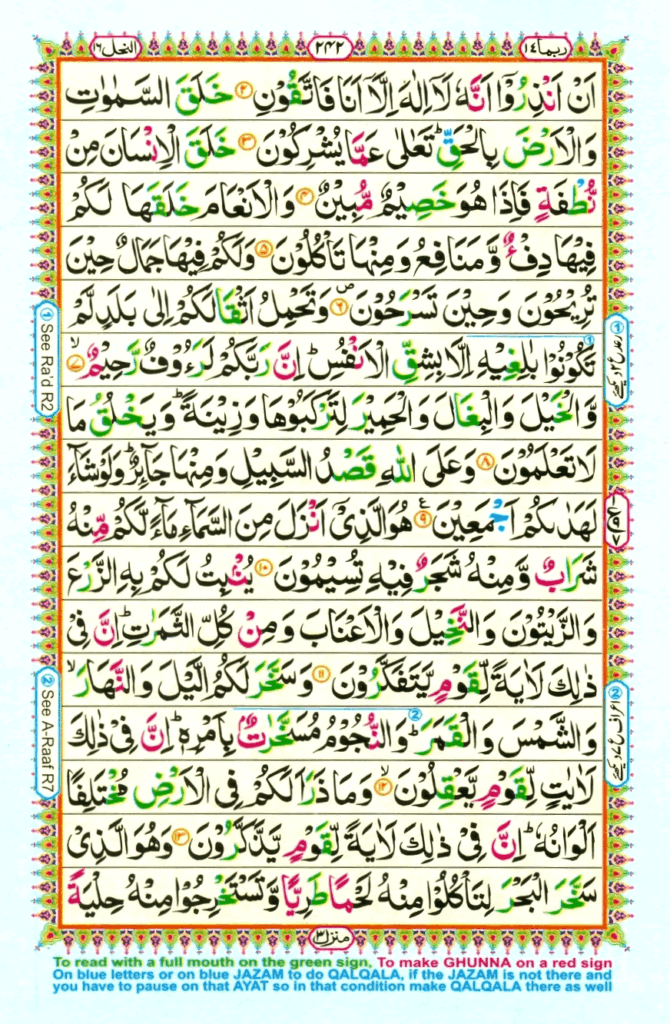 النحل ١٦
٢٤٢
ربما ١٤
اَنْ اَنْذِرُوْۤا اَنَّهٗ لَاۤ اِلٰهَ اِلَّاۤ اَنَا فَاتَّقُوْنِ ۲ خَلَقَ السَّمٰوٰتِ
وَالْاَرْضَ بِالْحَقِّ ؕ تَعٰلٰى عَمَّا يُشْرِكُوْنَ ۳ خَلَقَ الْاِنْسَانَ مِنْ
نُّطْفَةٍ فَاِذَا هُوَ خَصِيْمٌ مُّبِيْنٌ ۴ وَالْاَنْعَامَ خَلَقَهَا ۚ لَكُمْ
فِيْهَا دِفْءٌ وَّمَنَافِعُ وَمِنْهَا تَاْكُلُوْنَ ۵ وَلَكُمْ فِيْهَا جَمَالٌ حِيْنَ
تُرِيْحُوْنَ وَحِيْنَ تَسْرَحُوْنَ ۶ وَتَحْمِلُ اَثْقَالَكُمْ اِلٰى بَلَدٍ لَّمْ
تَكُوْنُوْا بٰلِغِيْهِ اِلَّا بِشِقِّ الْاَنْفُسِ ؕ اِنَّ رَبَّكُمْ لَرَءُوْفٌ رَّحِيْمٌ ۷
وَّالْخَيْلَ وَالْبِغَالَ وَالْحَمِيْرَ لِتَرْكَبُوْهَا وَزِيْنَةً ؕ وَيَخْلُقُ مَا
لَا تَعْلَمُوْنَ ۸ وَعَلَى اللّٰهِ قَصْدُ السَّبِيْلِ وَمِنْهَا جَآئِرٌ ؕ وَلَوْ شَآءَ
لَهَدٰٮكُمْ اَجْمَعِيْنَ ۹ هُوَ الَّذِىْۤ اَنْزَلَ مِنَ السَّمَآءِ مَآءً لَّكُمْ مِّنْهُ
شَرَابٌ وَّمِنْهُ شَجَرٌ فِيْهِ تُسِيْمُوْنَ ۱۰ يُنْۢبِتُ لَكُمْ بِهِ الزَّرْعَ
وَالزَّيْتُوْنَ وَالنَّخِيْلَ وَالْاَعْنَابَ وَمِنْ كُلِّ الثَّمَرٰتِ ؕ اِنَّ فِىْ
ذٰلِكَ لَاٰيَةً لِّقَوْمٍ يَّتَفَكَّرُوْنَ ۱۱ وَسَخَّرَ لَكُمُ الَّيْلَ وَالنَّهَارَ ۙ
وَالشَّمْسَ وَالْقَمَرَ ؕ وَالنُّجُوْمُ مُسَخَّرٰتٌۢ بِاَمْرِهٖ ؕ اِنَّ فِىْ ذٰلِكَ
لَاٰيٰتٍ لِّقَوْمٍ يَّعْقِلُوْنَ ۱۲ وَمَا ذَرَاَ لَكُمْ فِى الْاَرْضِ مُخْتَلِفًا
اَلْوَانُهٗ ؕ اِنَّ فِىْ ذٰلِكَ لَاٰيَةً لِّقَوْمٍ يَّذَّكَّرُوْنَ ۱۳ وَهُوَ الَّذِىْ
سَخَّرَ الْبَحْرَ لِتَاْكُلُوْا مِنْهُ لَحْمًا طَرِيًّا وَّتَسْتَخْرِجُوْا مِنْهُ حِلْيَةً
① See Ra'd R2
② See A-Raaf R7
منزل ٣
To read with a full mouth on the green sign. To make GHUNNA on a red sign
On blue letters or on blue JAZAM to do QALQALA, if the JAZAM is not there and
you have to pause on that AYAT so in that condition make QALQALA there as well